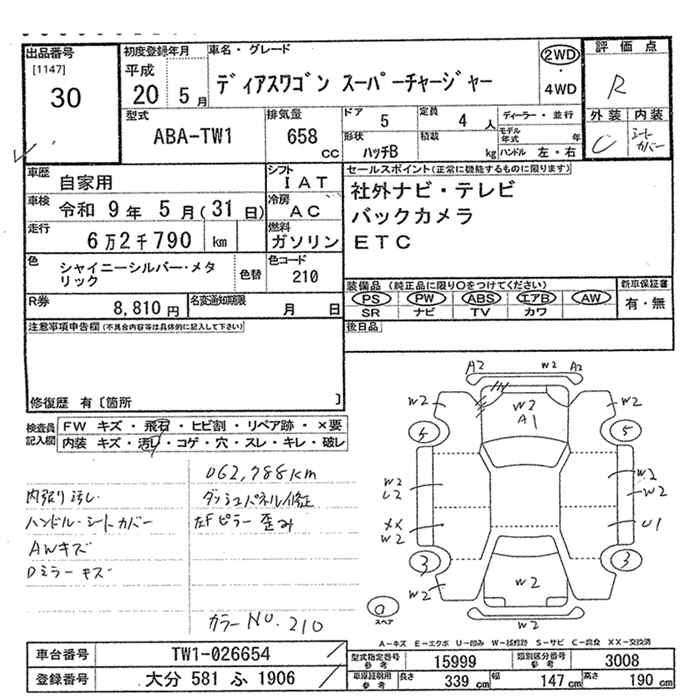 出品番号
[1147]
30
初度登録年月
平成
20 5月
車名・グレード
ディアスワゴン スーパーチャージャー
2WD
・
4WD
評価点
R
外装 内装
C シートカバー
型式
ABA-TW1
排気量
658 cc
ドア 5
定員 4 人
形状 ハッチB
積載 kg
ディーラー・並行
モデル年式 年
ハンドル 左・右
車歴 自家用
車検 令和 9年 5月(31日)
走行 6万2千790 km
シフト IAT
冷房 AC
燃料 ガソリン
色 シャイニーシルバー・メタリック
色替
色コード 210
R券 8,810円
名変通知期限 月 日
セールスポイント(正常に機能するものに限ります)
社外ナビ・テレビ
バックカメラ
ETC
装備品(純正品に限り○をつけてください)
PS PW ABS エアB AW
SR ナビ TV カワ
新車保証書
有・無
後日品
注意事項申告欄(不具合内容等は具体的に記入して下さい)
修復歴 有〔箇所 〕
検査員記入欄
FW キズ・飛石・ヒビ割・リペア跡・×要
内装 キズ・汚れ・コゲ・穴・スレ・キレ・破レ
062,788km
内張り汚し
ダッシュパネル修正
ハンドル・シートカバー
左Fピラー歪み
AWキズ
Dミラーキズ
カラーNo.210
A2 W2 A2
W2 W2 W2
A1
5 5
W2 W2
U2 W2
XX U1
W2
3 3
W2 W2
W2
スペア
A-キズ E-エクボ U-凹み W-波修跡 S-サビ C-腐食 XX-交換済
車台番号 TW1-026654
登録番号 大分 581 ふ 1906
型式指定番号 参考 15999
類別区分番号 参考 3008
車検証明用 参考 長さ 339 cm 幅 147 cm 高さ 190 cm